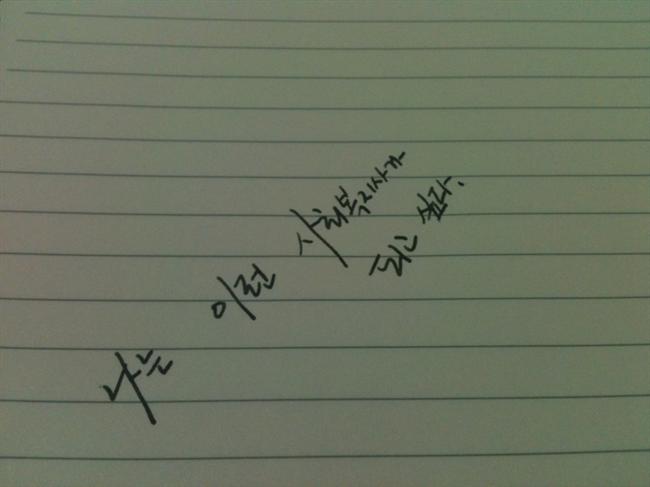 나는 이런 사회복지사가
되고 싶다.